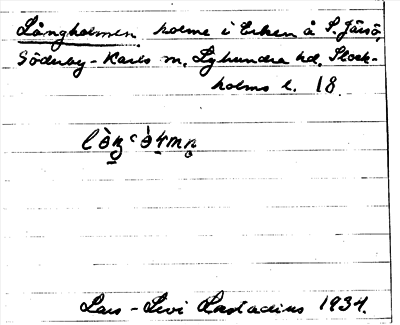 Långholmen holme i Erken å S. Järsö,
Söderby-Karls sn, Lyhundra hd, Stock-
holms l. 18.
Lars-Levi Læstadius 1934.